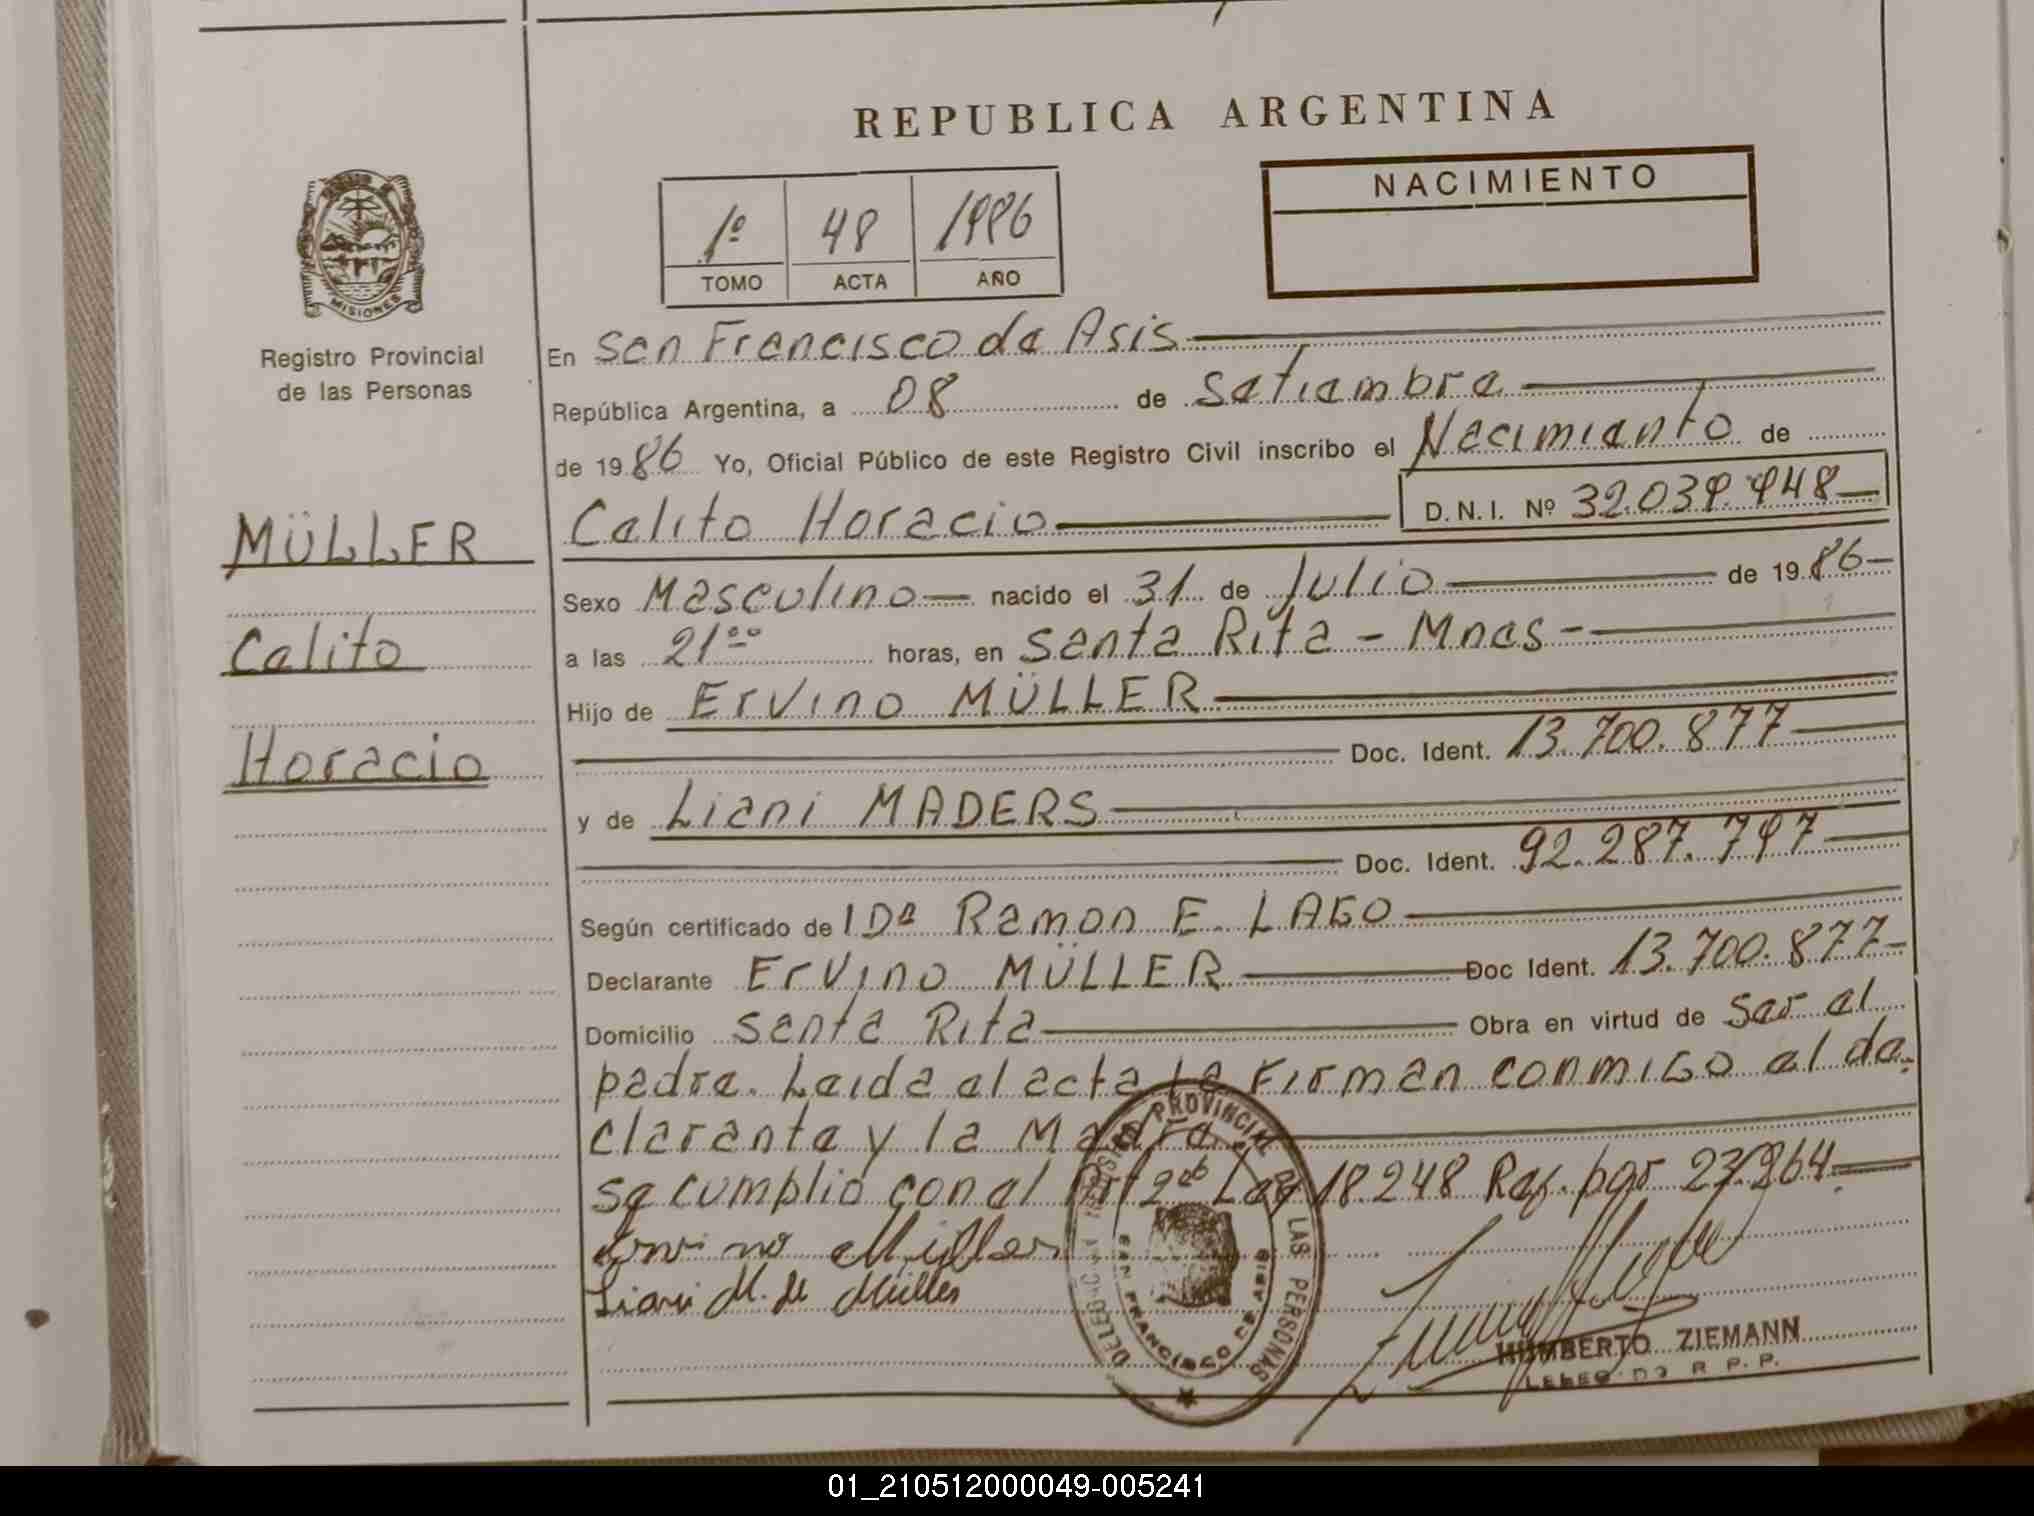 REPUBLICA ARGENTINA
NACIMIENTO
1º 48 1986
TOMO ACTA AÑO
MISIONES
Registro Provincial
de las Personas
MÜLLER
Calito
Horacio
En San Francisco de Asis
República Argentina, a 08 de Setiembre
de 1986 Yo, Oficial Público de este Registro Civil inscribo el Nacimiento de
Calito Horacio D.N.I. Nº 32.039.948
Sexo Masculino nacido el 31 de Julio de 1986
a las 21ºº horas, en Santa Rita - Mnes -
Hijo de Ervino MÜLLER
Doc. Ident. 13.700.877
y de Liani MADERS
Doc. Ident. 92.287.797
Según certificado de IDª Ramon E. LAGO
Declarante Ervino MÜLLER Doc Ident. 13.700.877
Domicilio Santa Rita Obra en virtud de Ser el
padre. Leida el acta la Firman conmigo el de-
clarante y la Madre.
se cumplio con el Art 2do Ley 18.248 Ref. por 23.264
Ervino Müller
Liani M. de Müller
DELEGACION REGISTRO PROVINCIAL DE LAS PERSONAS
SAN FRANCISCO DE ASIS
HUMBERTO ZIEMANN
R. P. P.
01_210512000049-005241